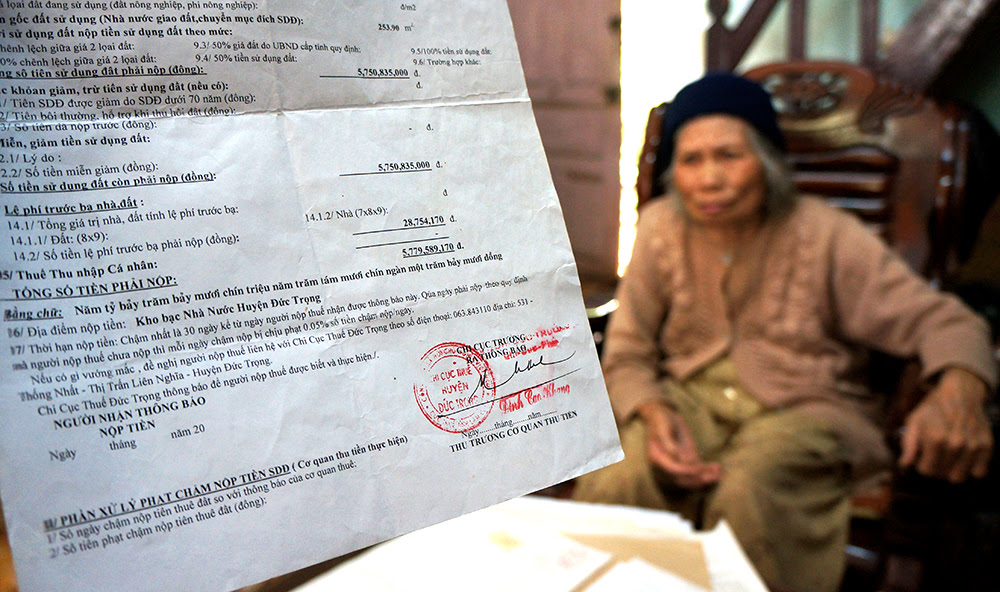 loại đất đang sử dụng (đất nông nghiệp, phi nông nghiệp): đ/m2
n gốc đất sử dụng (Nhà nước giao đất,chuyển mục đích SDĐ):
i sử dụng đất nộp tiền sử dụng đất theo mức: 253.90 m2
chênh lệch giữa giá 2 loại đất: 9.3/ 50% giá đất do UBND cấp tỉnh quy định: 9.5/100% tiền sử dụng đất:
0% chênh lệch giữa giá 2 loại đất: 9.4/ 50% tiền sử dụng đất: 9.6/ Trường hợp khác:
ng số tiền sử dụng đất phải nộp (đồng): 5,750,835,000 đ.
c khoản giảm, trừ tiền sử dụng đất (nếu có):
1/ Tiền SDĐ được giảm do SDĐ dưới 70 năm (đồng):
2/ Tiền bồi thường, hỗ trợ khi thu hồi đất (đồng):
3/ Số tiền đã nộp trước (đồng): - đ.
Miễn, giảm tiền sử dụng đất:
2.1/ Lý do :
2.2/ Số tiền miễn giảm (đồng): 5,750,835,000 đ.
Số tiền sử dụng đất còn phải nộp (đồng):
Lệ phí trước bạ nhà,đất : đ
14.1/ Tổng giá trị nhà, đất tính lệ phí trước bạ: 14.1.2/ Nhà (7x8x9):
14.1.1/ Đất: (8x9): 28,754,170 đ.
14.2/ Số tiền lệ phí trước bạ phải nộp (đồng): -
5/ Thuế Thu nhập Cá nhân: 5,779,589,170 đ.
TỔNG SỐ TIỀN PHẢI NỘP:
Bằng chữ: Năm tỷ bảy trăm bảy mươi chín triệu năm trăm tám mươi chín ngàn một trăm bảy mươi đồng
16/ Địa điểm nộp tiền: Kho bạc Nhà Nước Huyện Đức Trọng
17/ Thời hạn nộp tiền: Chậm nhất là 30 ngày kể từ ngày người nộp thuế nhận được thông báo này. Qúa ngày phải nộp theo quy định
mà người nộp thuế chưa nộp thì mỗi ngày chậm nộp bị chịu phạt 0.05% số tiền chậm nộp/ngày.
Nếu có gì vướng mắc , đề nghị người nộp thuế liên hệ với Chi Cục Thuế Đức Trọng theo số điện thoại: 063.843110 địa chỉ: 531 -
Thống Nhất - Thị Trấn Liên Nghĩa - Huyện Đức Trọng.
Chi Cục Thuế Đức Trọng thông báo để người nộp thuế được biết và thực hiện./.
NGƯỜI NHẬN THÔNG BÁO
NỘP TIỀN
Ngày tháng năm 20
CHI CỤC TRƯỞNG
RA THÔNG BÁO
CHI CỤC THUẾ
HUYỆN
ĐỨC TRỌNG
Đinh Cao Khang
Ngày........tháng........năm........
THỦ TRƯỞNG CƠ QUAN THU TIỀN
II/ PHẦN XỬ LÝ PHẠT CHẬM NỘP TIỀN SDĐ ( Cơ quan thu tiền thực hiện)
1/ Số ngày chậm nộp tiền thuê đất so với thông báo của cơ quan thuế:
2/ Số tiền phạt chậm nộp tiền thuê đất (đồng):